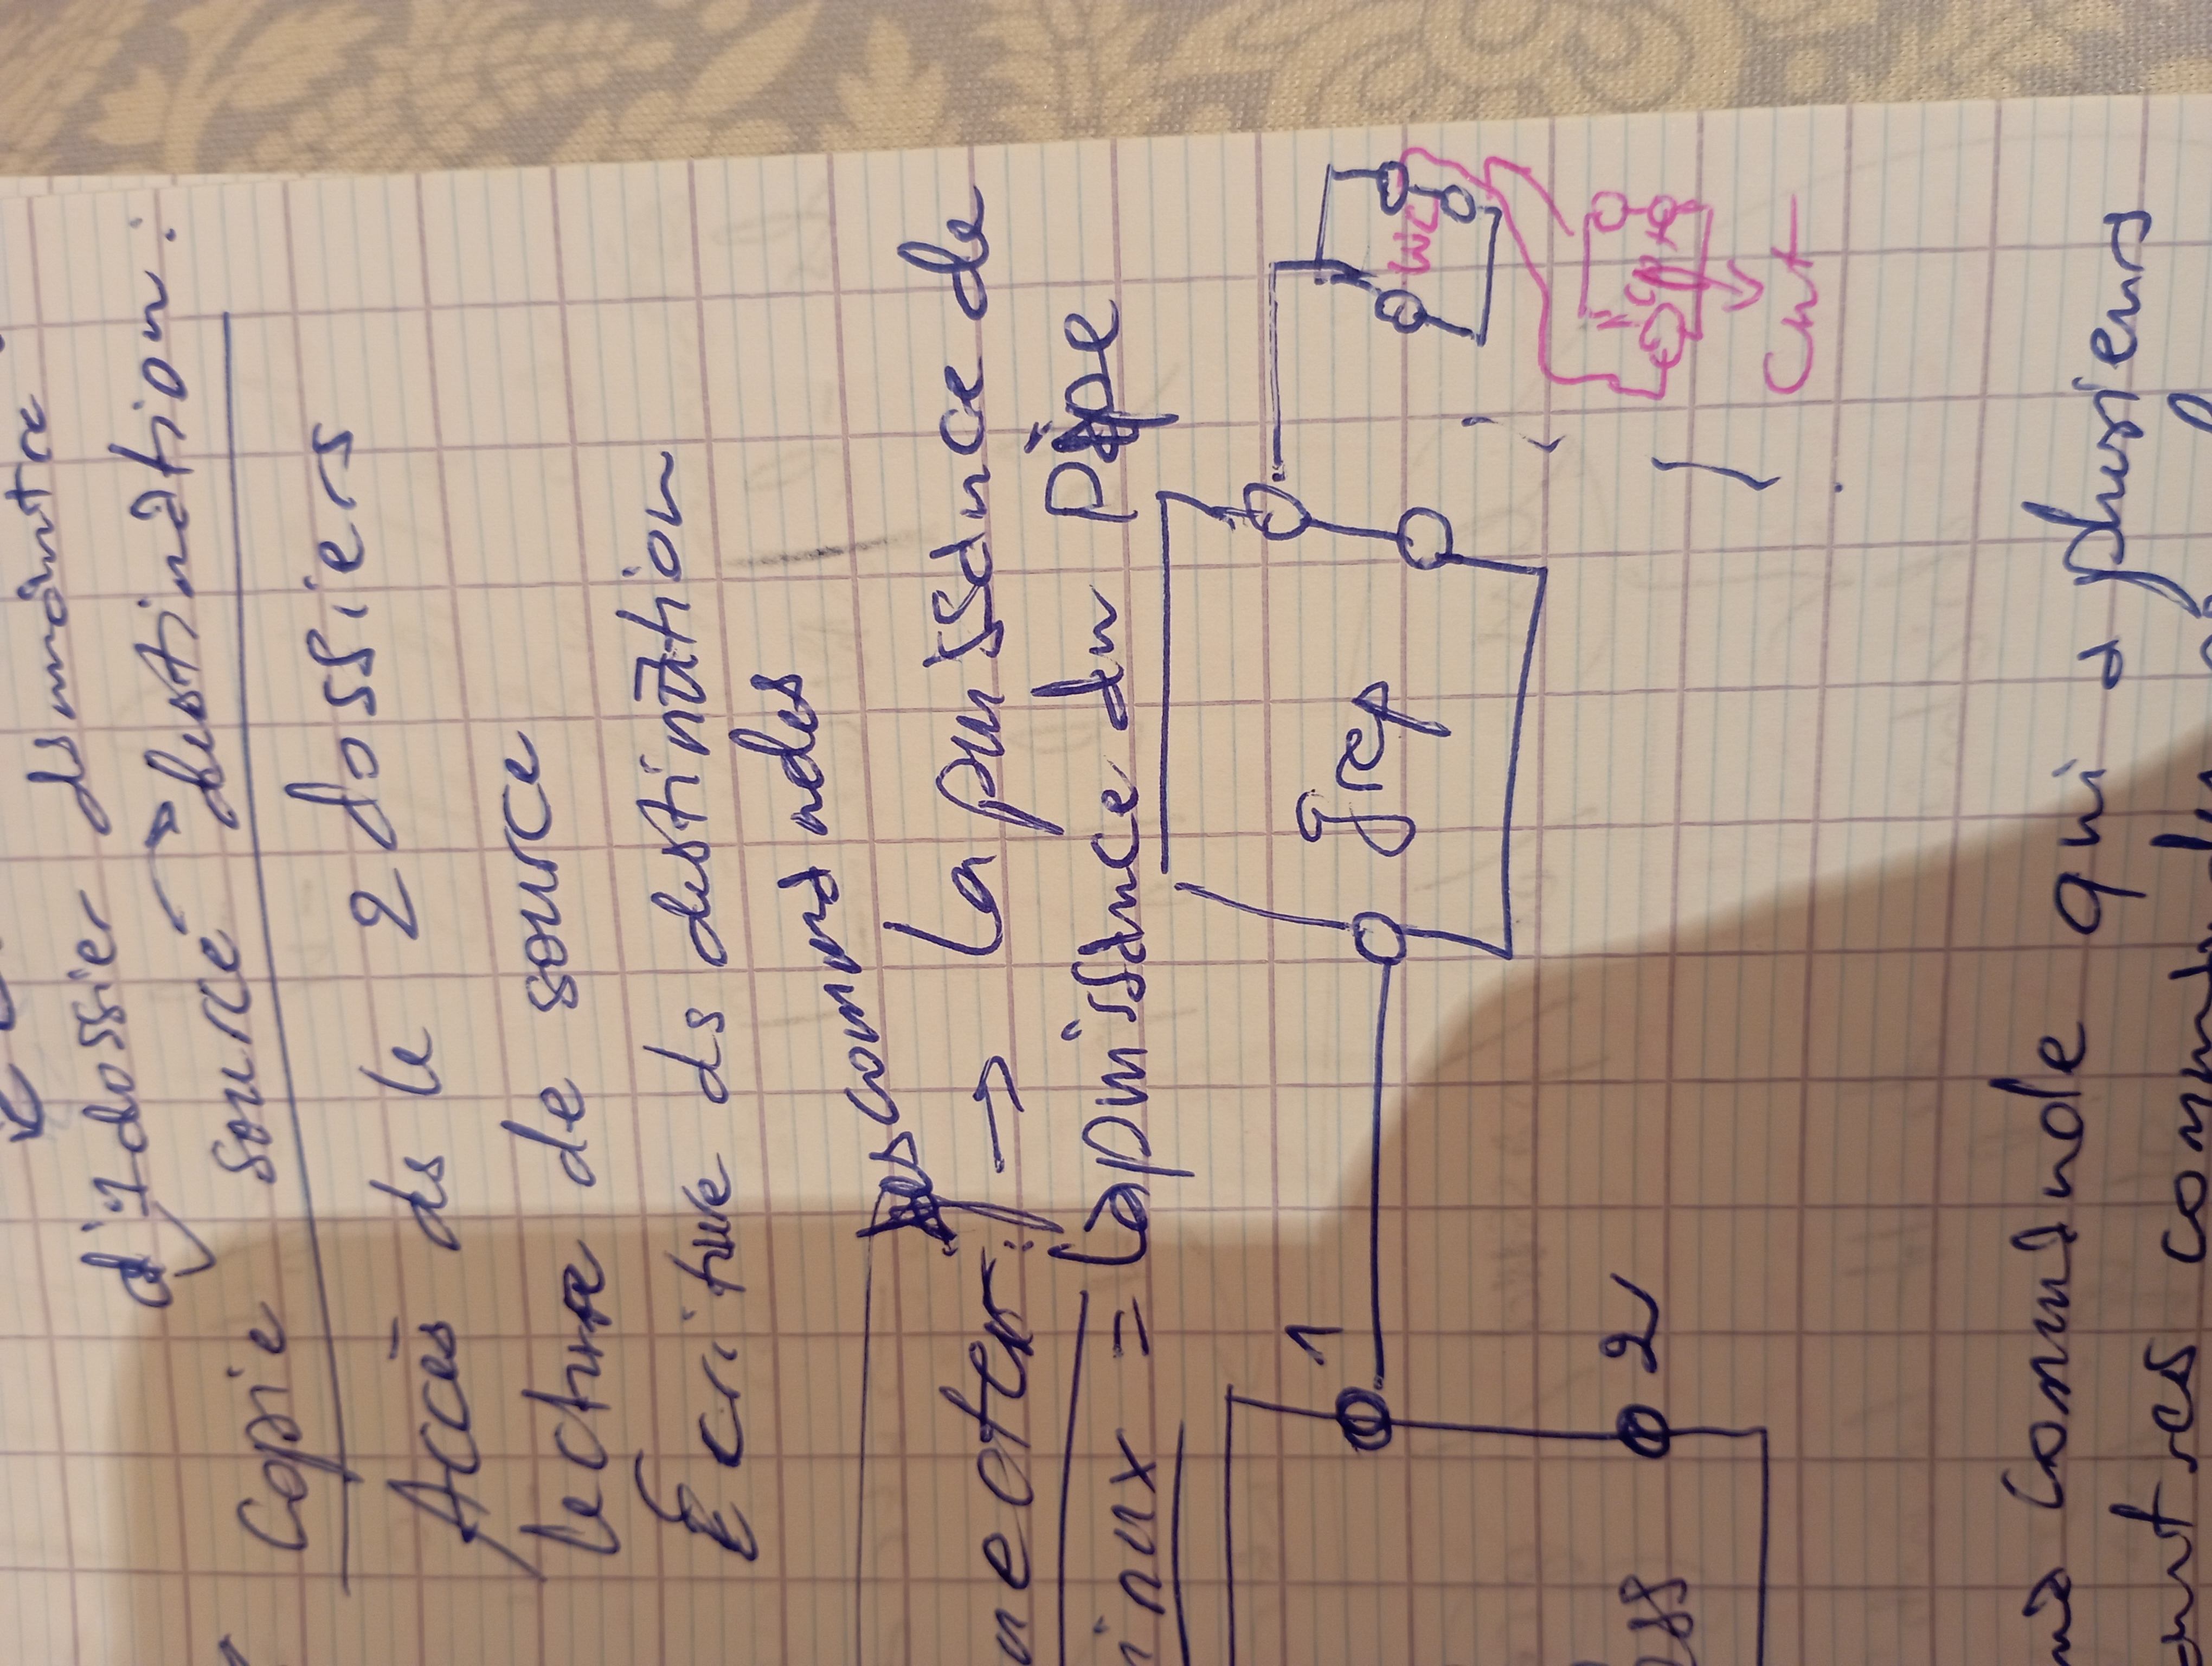 d'1 dossier ds
Copie source → destination :
Accès ds le 2 dossiers
Lecture de source
Ecriture ds destination
des commandes
necter : → La puissance de
inux = La puissance du Pipe
1
grep
wc
2
cp
Cut
commande qui a plusieurs
autres